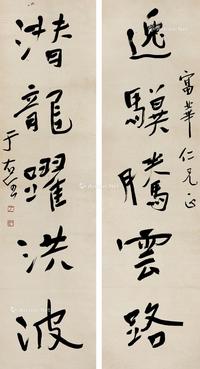 逸驥騰雲路
富華仁兄正
潛龍躍洪波
于右任